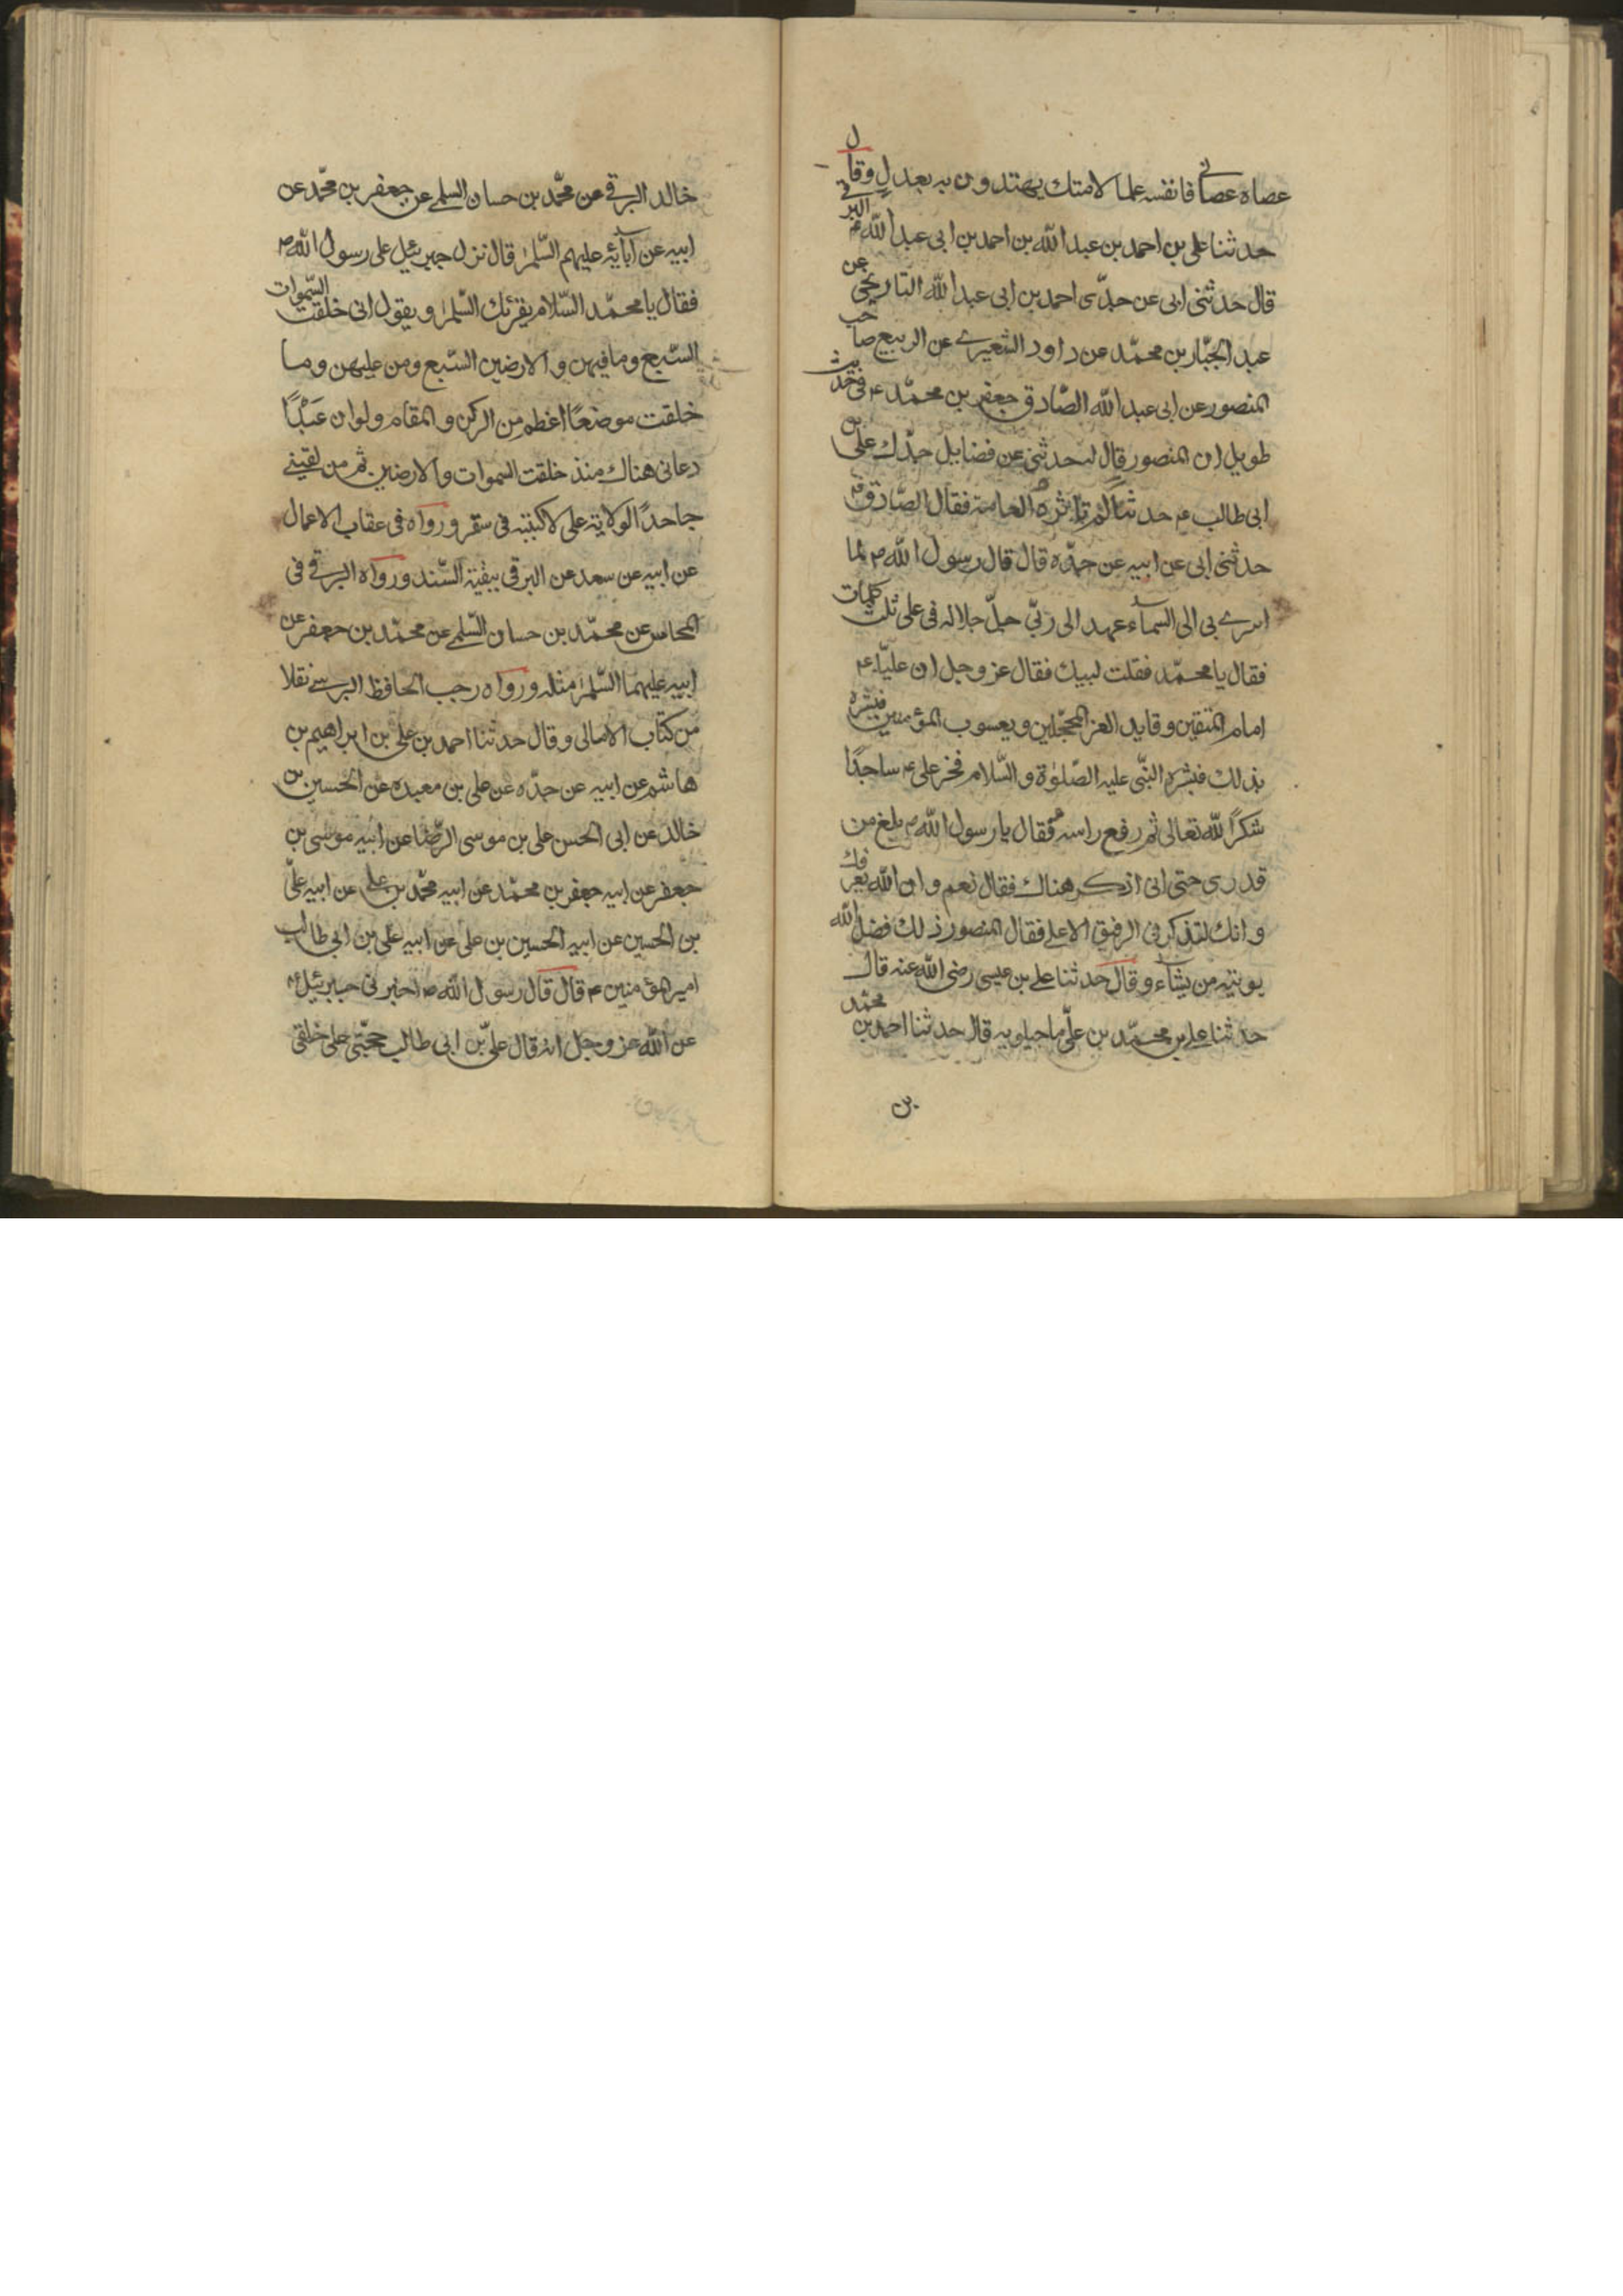 عصاه عصانی فانفسه علما لامتك يهتدون به بعدل وقال
حدثنا علی بن احمد بن عبدالله بن احمد بن ابی عبدالله البرقی
قال حدثنی ابی عن جدّی احمد بن ابی عبدالله التاریخی عن
عبد الجبّار بن محمّد عن داود الشعیری عن الربیع صاحب
المنصور عن ابی عبدالله الصّادق جعفر بن محمّد ع فی حدیث
طویل ان المنصور قال له حدثنی عن فضایل جدّك علی بن
ابی طالب ع حدثنا لم تاثره العامة فقال الصّادق ع
حدثنی ابی عن ابیه عن جدّه قال قال رسول الله ص لما
اسری بی الی السماء عهد الی ربّی جلّ جلاله فی علی ثلث كلمات
فقال یا محمّد فقلت لبیك فقال عز وجل ان علیّا ع
امام المتقین وقاید الغر المحجّلین ویعسوب المؤمنین فبشره
بذلك فبشره النبّی علیه الصّلوٰة والسّلام فخر علی ع ساجدًا
شكرًا لله تعالی ثم رفع راسه فقال یا رسول الله ص بلغ من
قدری حتی انی اذكر هناك فقال نعم وان الله یعرفك
وانك لتذكر فی الرفیق الاعلی فقال المنصور ذلك فضل الله
یوتیه من یشاء وقال حدثنا علی بن عیسی رضی الله عنه قال
حدثنا علی بن محمّد بن علیّ ماجیلویه قال حدثنا احمد بن محمّد
بن
خالد البرقی عن محمّد بن حسان السلمی عن جعفر بن محمّد عن
ابیه عن آبائه علیهم السّلم قال نزل جبرئیل علی رسول الله ص
فقال یا محمّد السّلام یقرئك السّلم ویقول انی خلقت السّموات
السّبع وما فیهن والارضین السّبع ومن علیهن وما
خلقت موضعًا اعظم من الركن والمقام ولوان عَبْدًا
دعانی هناك منذ خلقت السموات والارضین ثم من لقینی
جاحدًا لولایة علی لاكببته فی سقر ورواه فی عقاب الاعمال
عن ابیه عن سعد عن البرقی ببقیة السّند ورواه البرقی فی
المحاسن عن محمّد بن حسان السّلمی عن محمّد بن جعفر عن
ابیه علیهما السّلم مثله ورواه رجب الحافظ البرسی نقلا
من كتاب الامالی وقال حدثنا احمد بن علی بن ابراهیم بن
هاشم عن ابیه عن جدّه عن علی بن معبده عن الحسین بن
خالد عن ابی الحسن علی بن موسی الرّضا عن ابیه موسی بن
جعفر عن ابیه جعفر بن محمّد عن ابیه محمّد بن علی عن ابیه علیّ
بن الحسین عن ابیه الحسین بن علی عن ابیه علی بن ابی طالب
امیر المؤمنین ع قال قال رسول الله ص اخبرنی جبرئیل ع
عن الله عز وجل انه قال علیّ بن ابی طالب حجّتی علی خلقی